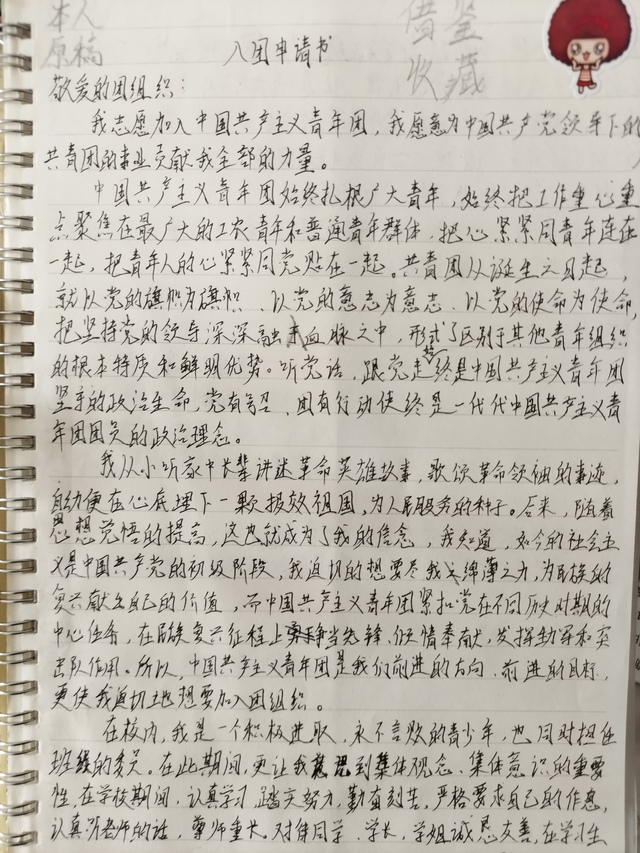 本人
原稿
借鉴
收藏
入团申请书
敬爱的团组织：
我志愿加入中国共产主义青年团，我愿意为中国共产党领导下的
共青团的事业贡献我全部的力量。
中国共产主义青年团始终扎根广大青年，始终把工作重心重
点聚焦在最广大的工农青年和普通青年群体，把心紧紧同青年连在
一起，把青年人的心紧紧同党贴在一起。共青团从诞生之日起，
就以党的旗帜为旗帜、以党的意志为意志、以党的使命为使命，
把坚持党的领导深深融末血脉之中，形式了区别于其他青年组织
的根本特质和鲜明优势。听党话，跟党走终是中国共产主义青年团
坚守的政治生命，党有号召、团有行动使终是一代代中国共产主义青
年团团员的政治理念。
我从小听家中长辈讲述革命英雄故事，歌颂革命领袖的事迹，
自幼便在心底埋下一颗报效祖国，为人民服务的种子。后来，随着
思想觉悟的提高，这也就成为了我的信念，我知道，如今的社会主
义是中国共产党的初级阶段，我迫切的想要尽我绵薄之力，为民族的
复兴献出自己的价值，而中国共产主义青年团紧扣党在不同历史时期的
中心任务，在民族复兴征程上当先锋、倾情奉献，发挥生力军和突
击队作用。所以，中国共产主义青年团是我们前进的方向、前进的目标，
更使我迫切地想要加入团组织。
在校内，我是一个积极进取，永不言败的青少年，也同时担任
班级的委员。在此期间，更让我意识到集体观念、集体意识的重要
性，在学校期间，认真学习，踏实努力，勤奋刻苦，严格要求自己的作息，
认真听老师的话，尊师重长。对待同学、学长，学姐诚恳友善，在学习生